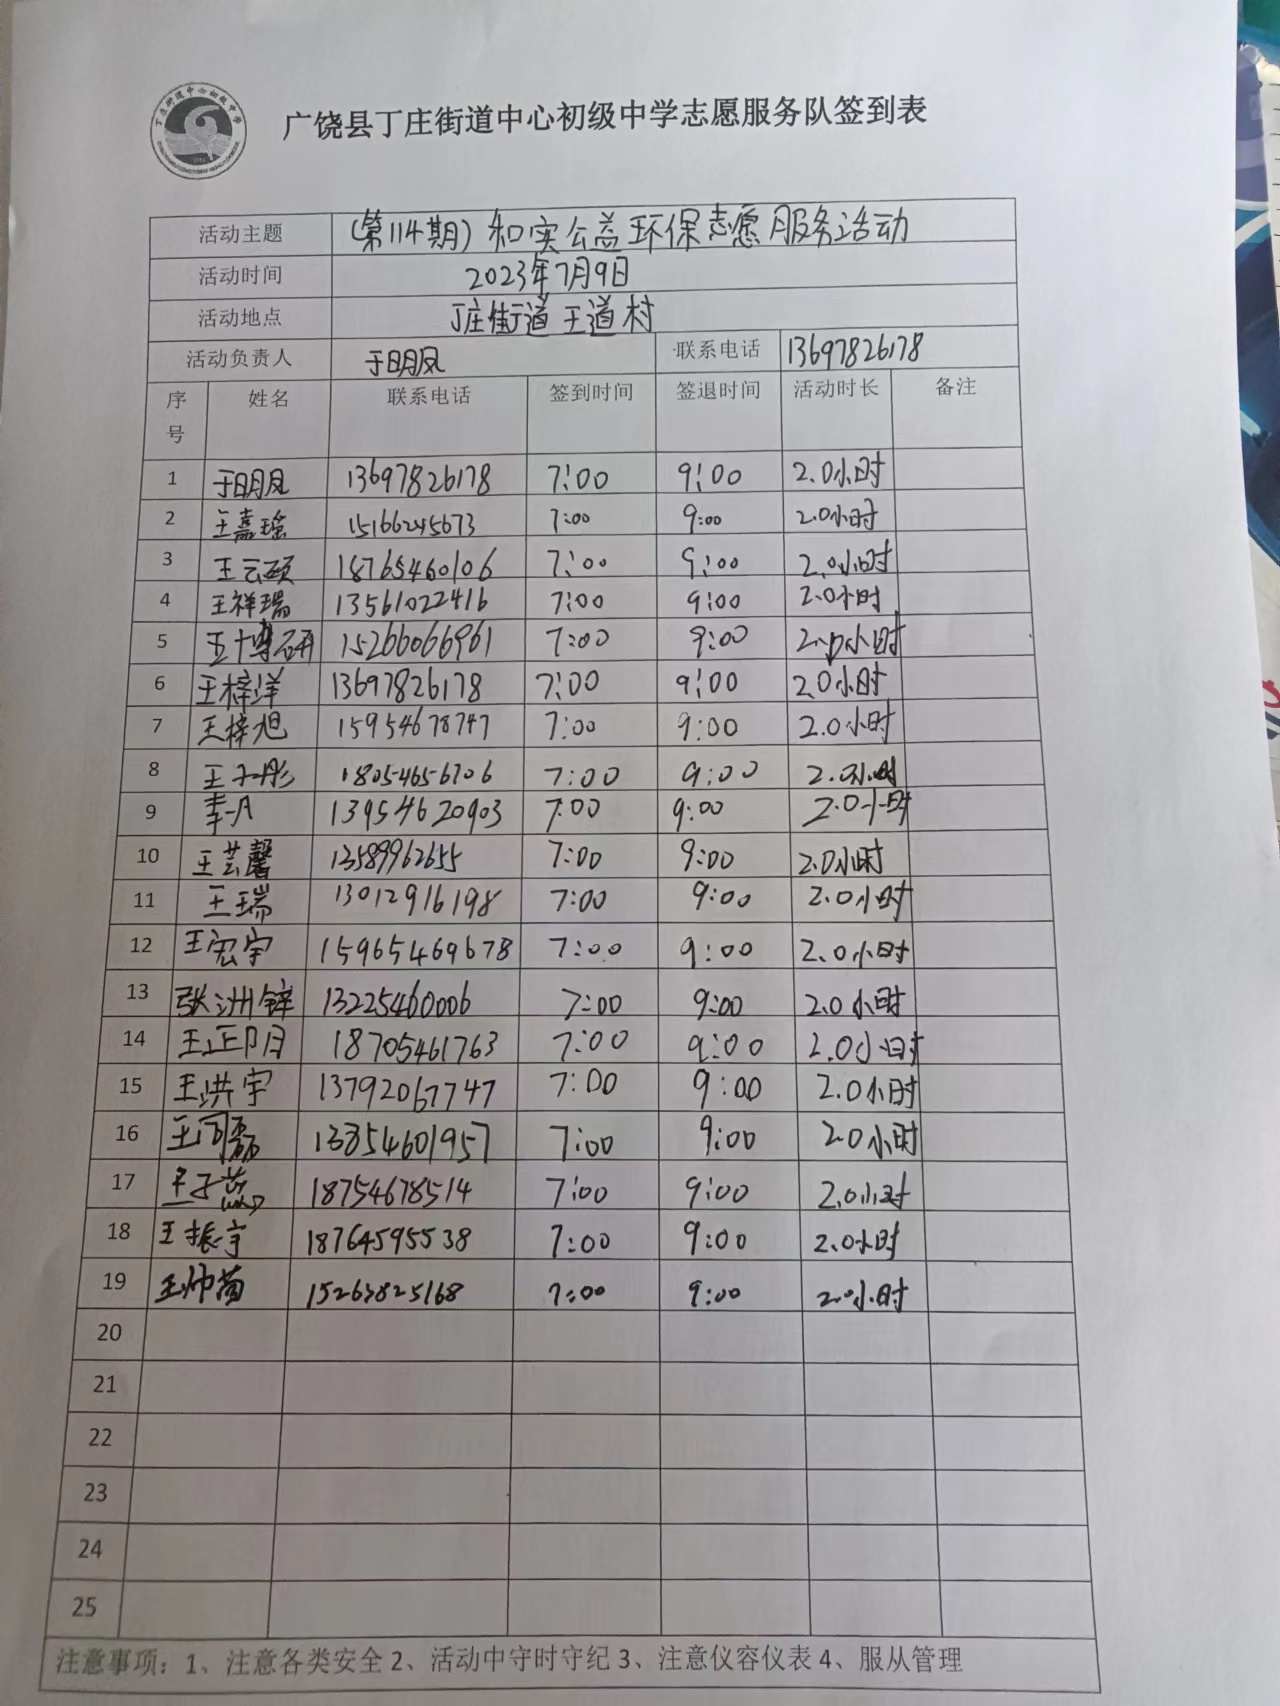 广饶县丁庄街道中心初级中学志愿服务队签到表
活动主题 (第114期)和实公益环保志愿服务活动
活动时间 2023年7月9日
活动地点 丁庄街道王道村
活动负责人 于明凤 联系电话 13697826178
序号 姓名 联系电话 签到时间 签退时间 活动时长 备注
1 于明凤 13697826178 7:00 9:00 2.0小时
2 王嘉瑶 15166245673 7:00 9:00 2.0小时
3 王云硕 18765460106 7:00 9:00 2.0小时
4 王祥瑞 13561022416 7:00 9:00 2.0小时
5 王博研 15266066961 7:00 9:00 2.0小时
6 王梓洋 13697826178 7:00 9:00 2.0小时
7 王梓旭 15954678747 7:00 9:00 2.0小时
8 王子彤 18054656706 7:00 9:00 2.0小时
9 李一凡 13954620903 7:00 9:00 2.0小时
10 王芸馨 13589962655 7:00 9:00 2.0小时
11 王瑞 13012916198 7:00 9:00 2.0小时
12 王宏宇 15965469678 7:00 9:00 2.0小时
13 张洲锌 13225460006 7:00 9:00 2.0小时
14 王正阳 18705461763 7:00 9:00 2.0小时
15 王洪宇 13792067747 7:00 9:00 2.0小时
16 王可磊 13854601957 7:00 9:00 2.0小时
17 王子燕 18754678514 7:00 9:00 2.0小时
18 王振宇 18764595538 7:00 9:00 2.0小时
19 王帅 15263825168 7:00 9:00 2.0小时
20
21
22
23
24
25
注意事项：1、注意各类安全 2、活动中守时守纪 3、注意仪容仪表 4、服从管理